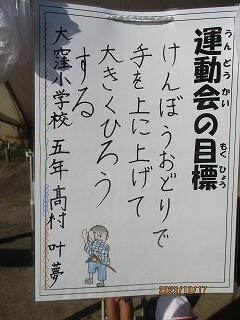 運動会の目標
うんどうかい もくひょう
けんぽうおどりで
手を上に上げて
大きくひろう
する
大窪小学校 五年 髙村 叶夢
2023/10/17